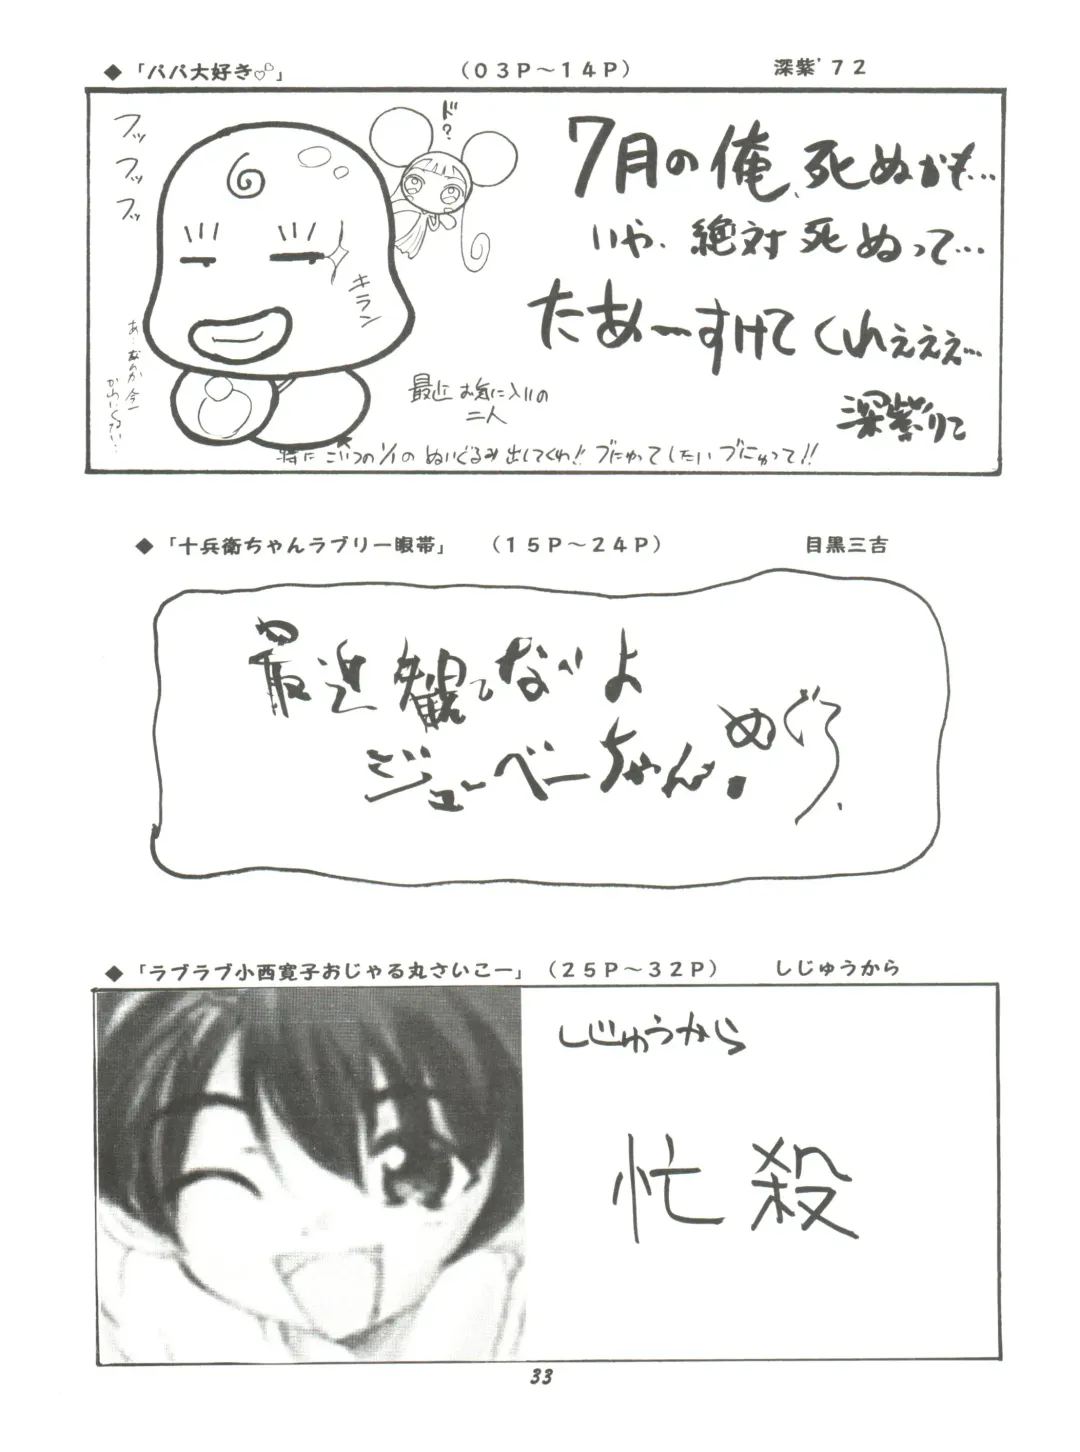 ◆「パパ大好き♡」 （０３Ｐ～１４Ｐ） 深紫'７２
フッ
フッ
フッ
ド？
キラン
あ…なんか今一
かわいくない…
7月の俺、死ぬかも…
いや、絶対死ぬって…
たあーすけてくれぇぇぇ…
深紫りこ
最近お気に入りの
二人
特にこいつの1/1のぬいぐるみ出してくれ!! ブにゅってしたいブにゅって!!
◆「十兵衛ちゃんラブリー眼帯」 （１５Ｐ～２４Ｐ） 目黒三吉
最近観てないよ
ジューベーちゃん。
◆「ラブラブ小西寛子おじゃる丸さいこー」 （２５Ｐ～３２Ｐ） しじゅうから
しじゅうから
忙殺
33